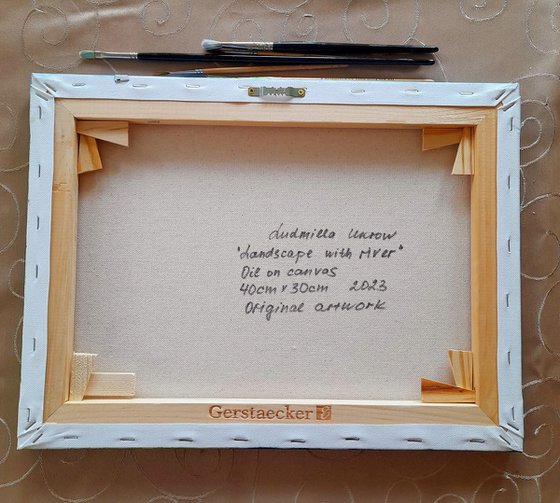 Ludmilla Ukrow
"Landscape with river"
Oil on canvas
40cm x 30cm 2023
Original artwork
Gerstaecker